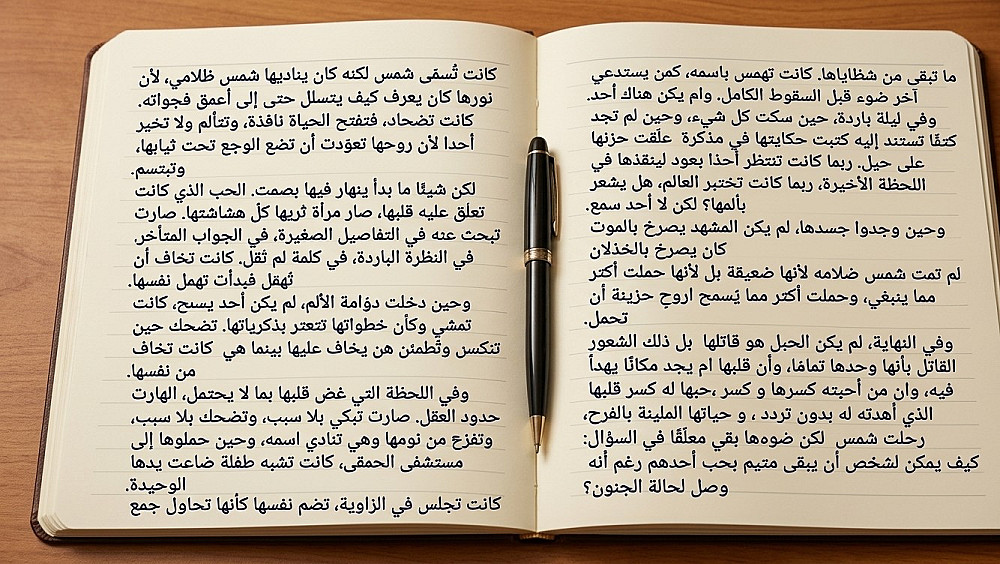 كانت تُسمّى شمس لكنه كان يناديها شمس ظلامي، لأن
نورها كان يعرف كيف يتسلل حتى إلى أعمق فجواته.
كانت تضحاد، فتفتح الحياة نافذة، وتتألم ولا تخير
أحدا لأن روحها تعوّدت أن تضع الوجع تحت ثيابها،
وتبتسم.
لكن شيئًا ما بدأ ينهار فيها بصمت. الحب الذي كانت
تعلّق عليه قلبها، صار مرأة ثريها كلّ هشاشتها. صارت
تبحث عنه في التفاصيل الصغيرة، في الجواب المتأخر،
في النظرة الباردة، في كلمة لم تُقل. كانت تخاف أن
تُهقل فبدأت تهمل نفسها.
وحين دخلت دوّامة الألم، لم يكن أحد يسبح، كانت
تمشي وكأن خطواتها تتعتر بذكرياتها. تضحك حين
تنكسس وتُطمئن هن يخاف عليها بينما هي كانت تخاف
من نفسها.
وفي اللحظة التي غض قلبها بما لا يحتمل، الهارت
حدود العقل. صارت تبكي بلا سبب، وتضحك بلا سبب،
وتفزع من نومها وهي تنادي اسمه، وحين حملوها إلى
مستشفى الحمقى، كانت تشبه طفلة ضاعت يدها
الوحيدة.
كانت تجلس في الزاوية، تضم نفسها كأنها تحاول جمع
ما تبقى من شظاياها. كانت تهمس باسمه، كمن يستدعي
آخر ضوء قبل السقوط الكامل. وام يكن هناك أحد.
وفي ليلة باردة، حين سكت كل شيء، وحين لم تجد
كتفًا تستند إليه كتبت حكايتها في مذكرة علّقت حزنها
على حيل. ربما كانت تنتظر أحدًا يعود لينقذها في
اللحظة الأخيرة، ربما كانت تختبر العالم، هل يشعر
بألمها؟ لكن لا أحد سمع.
وحين وجدوا جسدها، لم يكن المشهد يصرخ بالموت
كان يصرخ بالخذلان
لم تمت شمس ضلامه لأنها ضعيقة بل لأنها حملت أكتر
مما ينبغي، وحملت أكتر مما يَسمح اروحٍ حزينة أن
تحمل.
وفي النهاية، لم يكن الحبل هو قاتلها بل ذلك الشعور
القاتل بأنها وحدها تمامًا، وأن قلبها ام يجد مكانًا يهدأ
فيه، وان من أحبته كسرها و كسر ,حبها له كسر قلبها
الذي أهدته له بدون تردد ، و حياتها المليئة بالفرح،
رحلت شمس لكن ضوءها بقي معلّقًا في السؤال:
كيف يمكن لشخص أن يبقى متيم بحب أحدهم رغم أنه
وصل لحالة الجنون؟